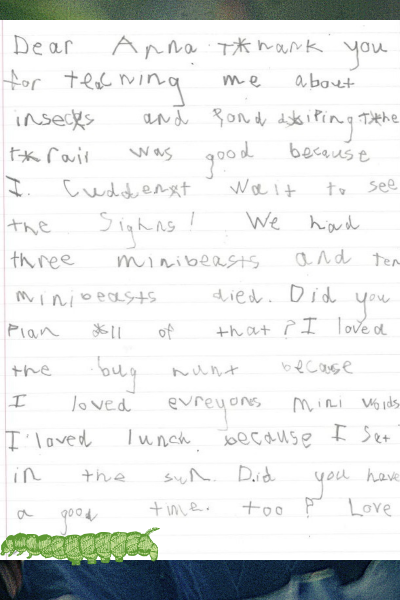 Dear Anna Thank you
for teching me about
insects and Pond diping the
trail was good because
I. Cuddent wait to see
the Sighns! We had
three minibeasts and ten
minibeasts died. Did you
Plan all of that? I loved
the bug hunt becase
I loved evreyons mini
I loved lunch because I Sat
in the sun. Did you have
a good time. too? Love